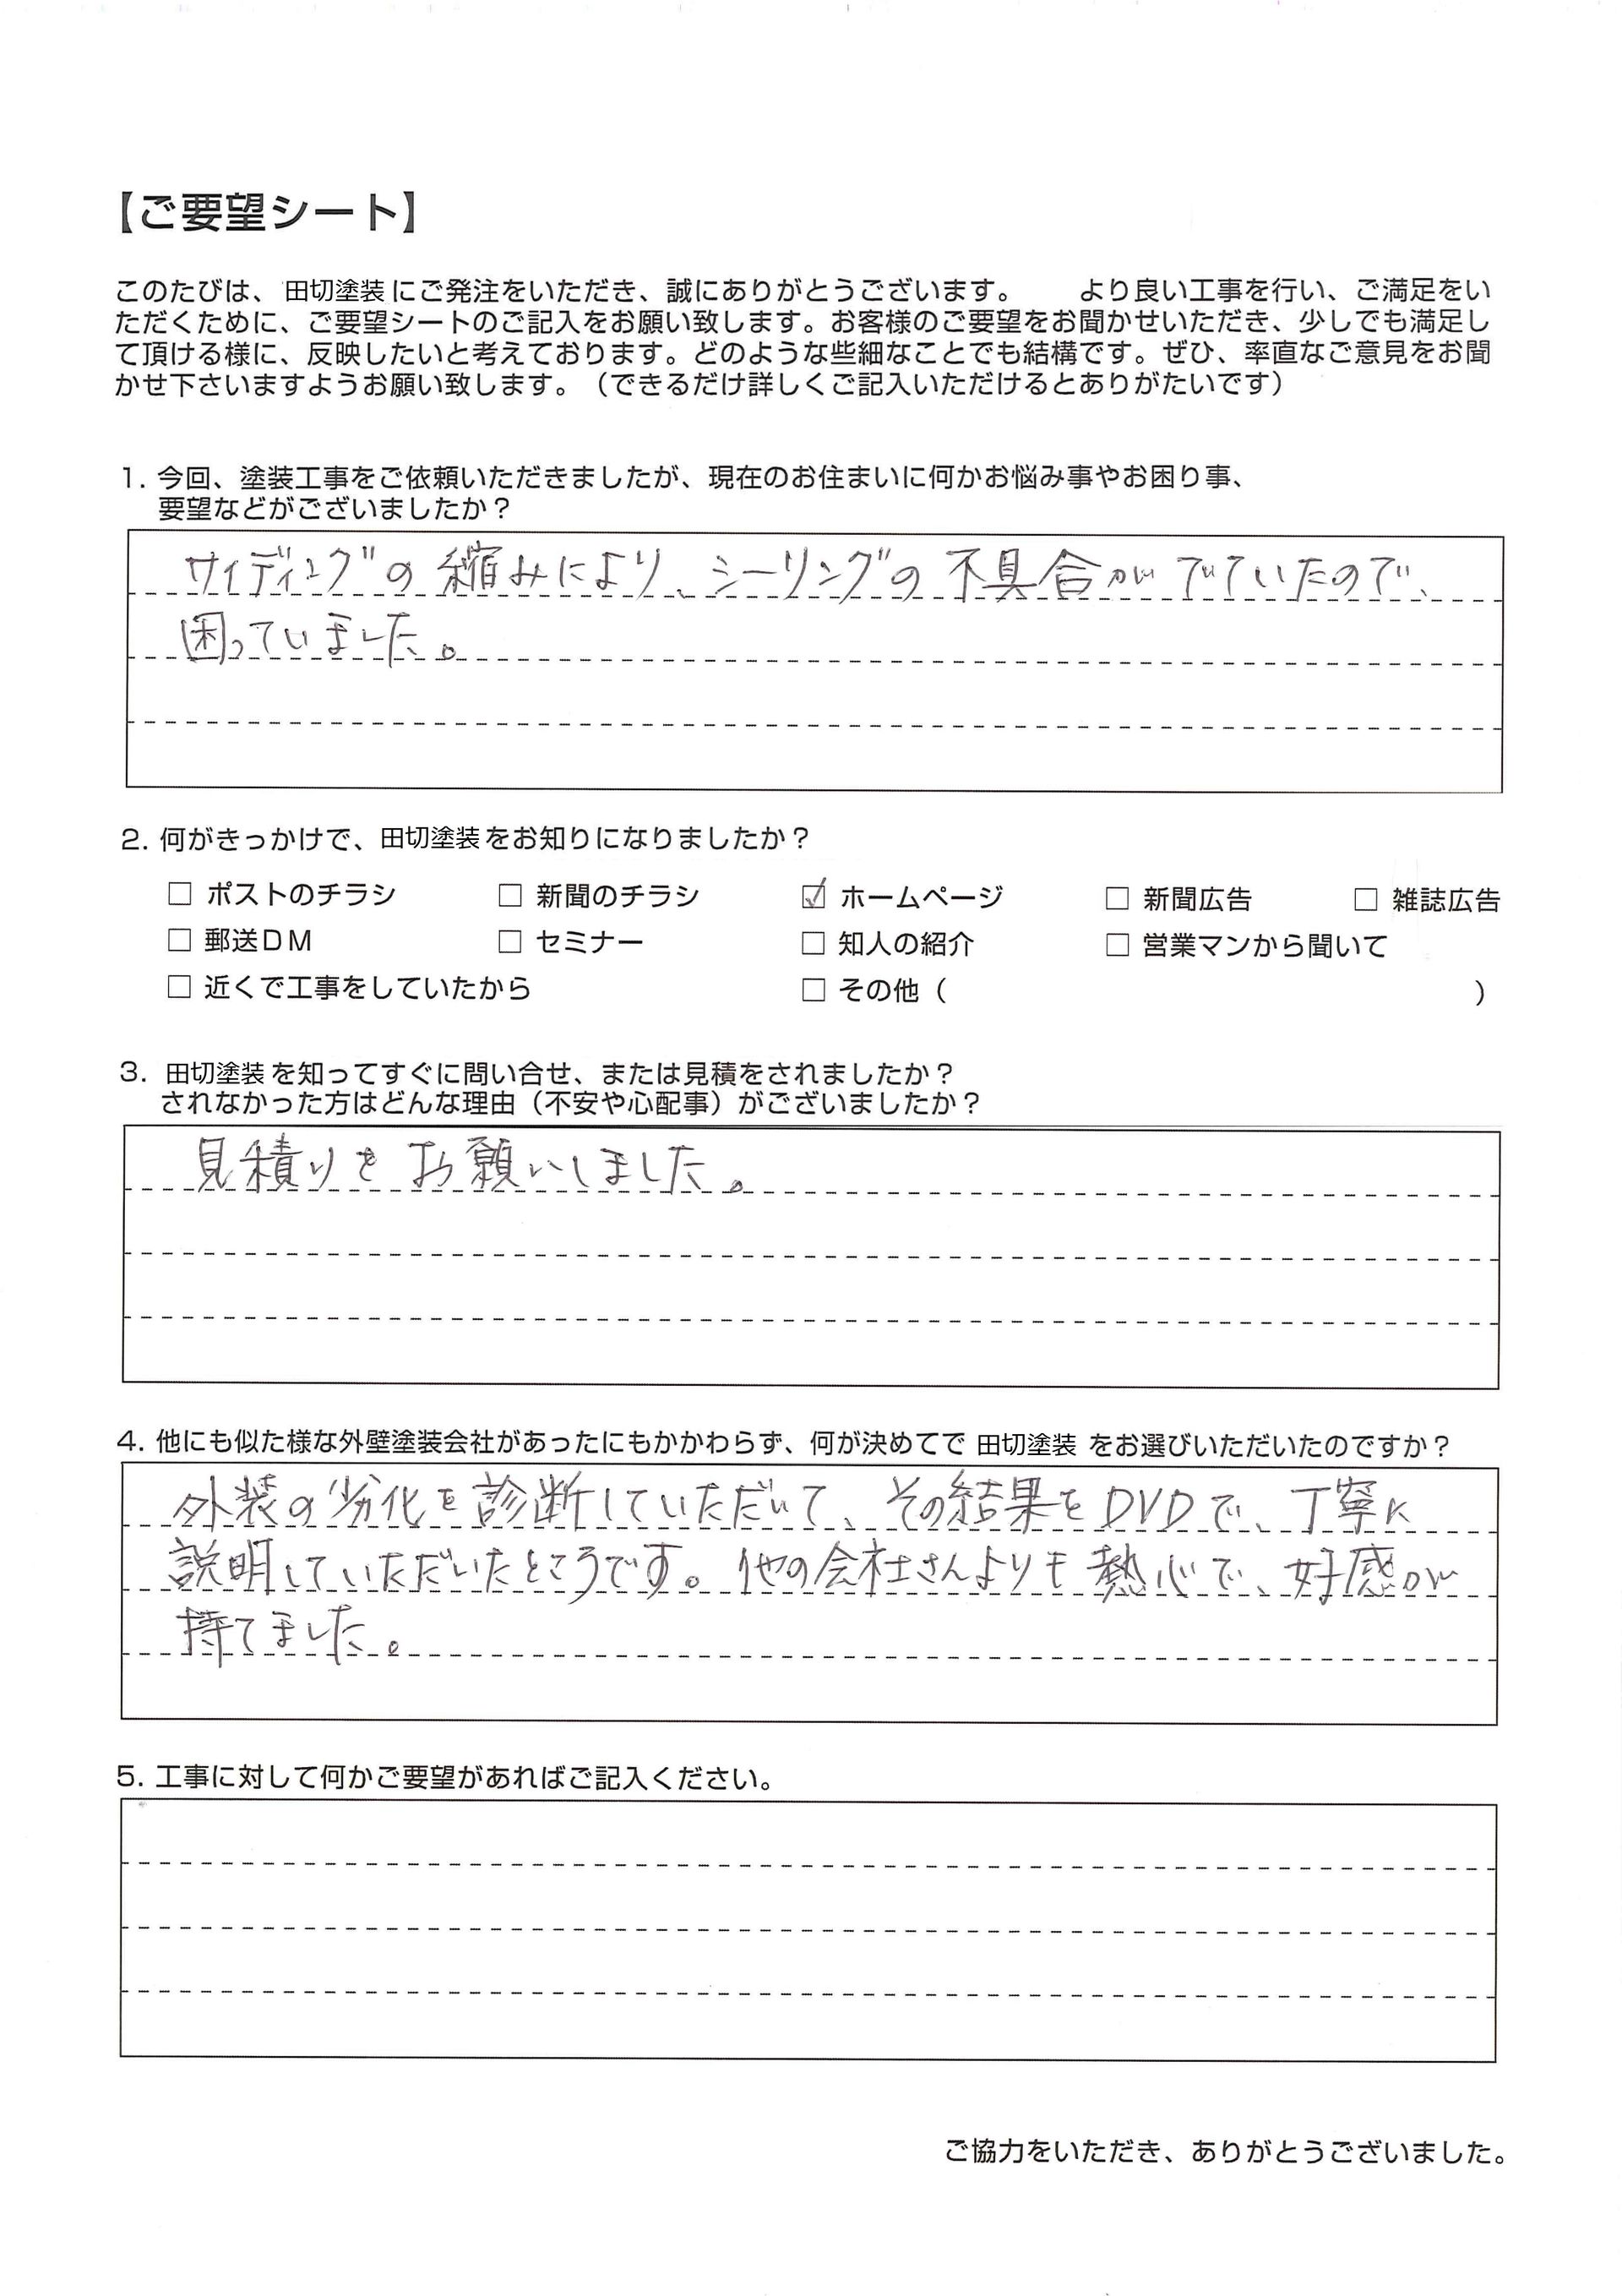 【ご要望シート】
このたびは、田切塗装にご発注をいただき、誠にありがとうございます。　　より良い工事を行い、ご満足をい
ただくために、ご要望シートのご記入をお願い致します。お客様のご要望をお聞かせいただき、少しでも満足し
て頂ける様に、反映したいと考えております。どのような些細なことでも結構です。ぜひ、率直なご意見をお聞
かせ下さいますようお願い致します。（できるだけ詳しくご記入いただけるとありがたいです）
1. 今回、塗装工事をご依頼いただきましたが、現在のお住まいに何かお悩み事やお困り事、
要望などがございましたか？
サイディングの縮みにより、シーリングの不具合がでていたので、
困っていました。
2. 何がきっかけで、田切塗装をお知りになりましたか？
□ ポストのチラシ　□ 新聞のチラシ　☑ ホームページ　□ 新聞広告　□ 雑誌広告
□ 郵送ＤＭ　□ セミナー　□ 知人の紹介　□ 営業マンから聞いて
□ 近くで工事をしていたから　□ その他（　　　）
3. 田切塗装を知ってすぐに問い合せ、または見積をされましたか？
されなかった方はどんな理由（不安や心配事）がございましたか？
見積りをお願いしました。
4. 他にも似た様な外壁塗装会社があったにもかかわらず、何が決めてで 田切塗装 をお選びいただいたのですか？
外装の劣化を診断していただいて、その結果をDVDで、丁寧に
説明していただいたところです。他の会社さんよりも熱心で、好感が
持てました。
5. 工事に対して何かご要望があればご記入ください。
ご協力をいただき、ありがとうございました。